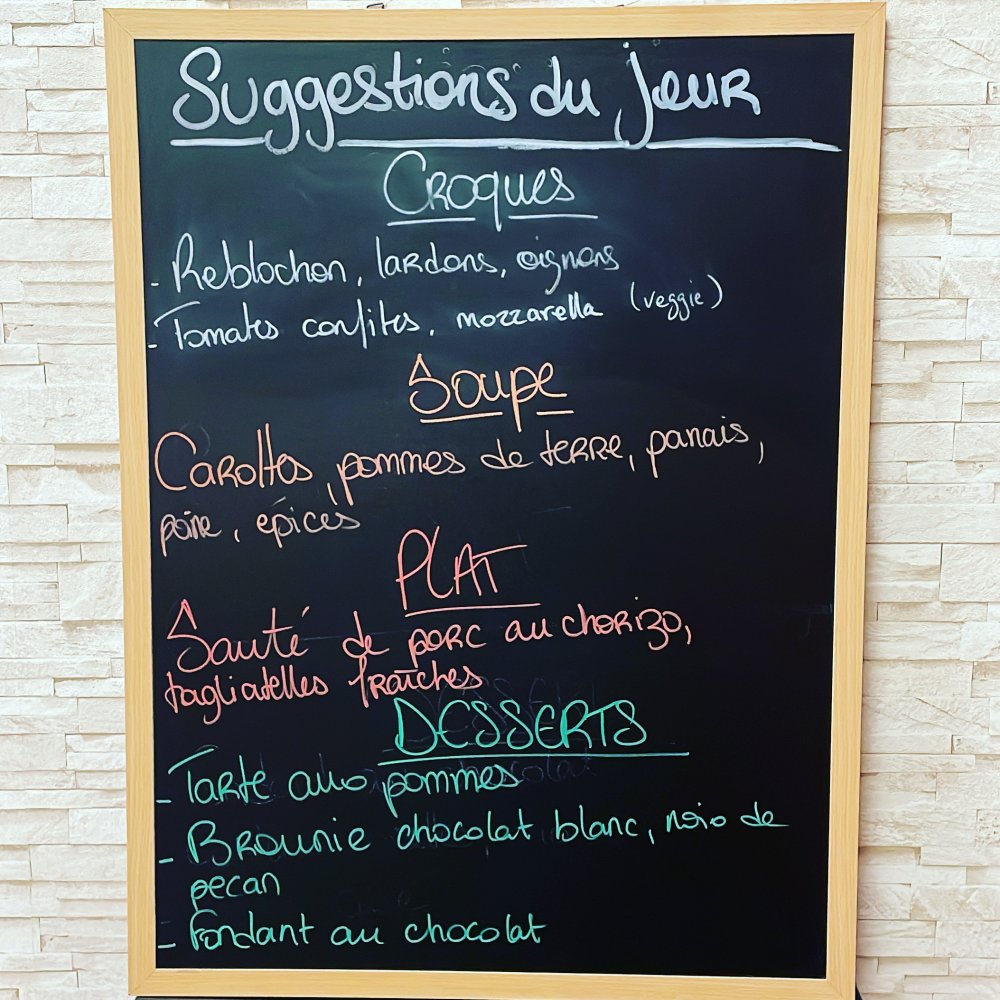 Suggestions du jour
Croques
- Reblochon, lardons, oignons
- Tomates confites, mozzarella (veggie)
Soupe
Carottes, pommes de terre, panais,
poire, épices
PLAT
Sauté de porc au chorizo,
tagliatelles fraîches
DESSERTS
- Tarte aux pommes
- Brownie chocolat blanc, noix de
pecan
- Fondant au chocolat